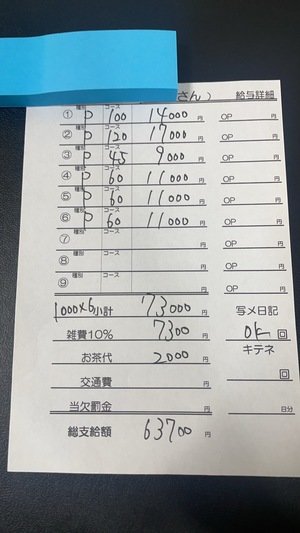 さん) 給与詳細
① 種別 P コース 100 14000 円 OP 円
② 種別 P コース 120 17000 円 OP 円
③ 種別 P コース 45 9000 円 OP 円
④ 種別 P コース 60 11000 円 OP 円
⑤ 種別 P コース 60 11000 円 OP 円
⑥ 種別 P コース 60 11000 円 OP 円
⑦ 種別 コース 円 OP 円
⑧ 種別 コース 円 OP 円
⑨ 種別 コース 円 OP 円
1000×6 小計 73000 円 写メ日記
雑費10% 7300 円 OK 回
お茶代 2000 円 キテネ
交通費 円 回
当欠罰金 円 日分
総支給額 63700 円